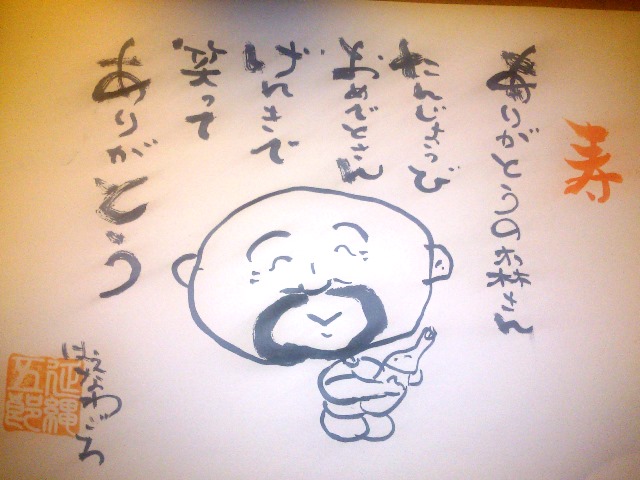 寿
ありがとうの お林さん
たんじょうび
おめでとさん
げんきで
笑って
ありがとう
はえなわごろ
延縄
五郎